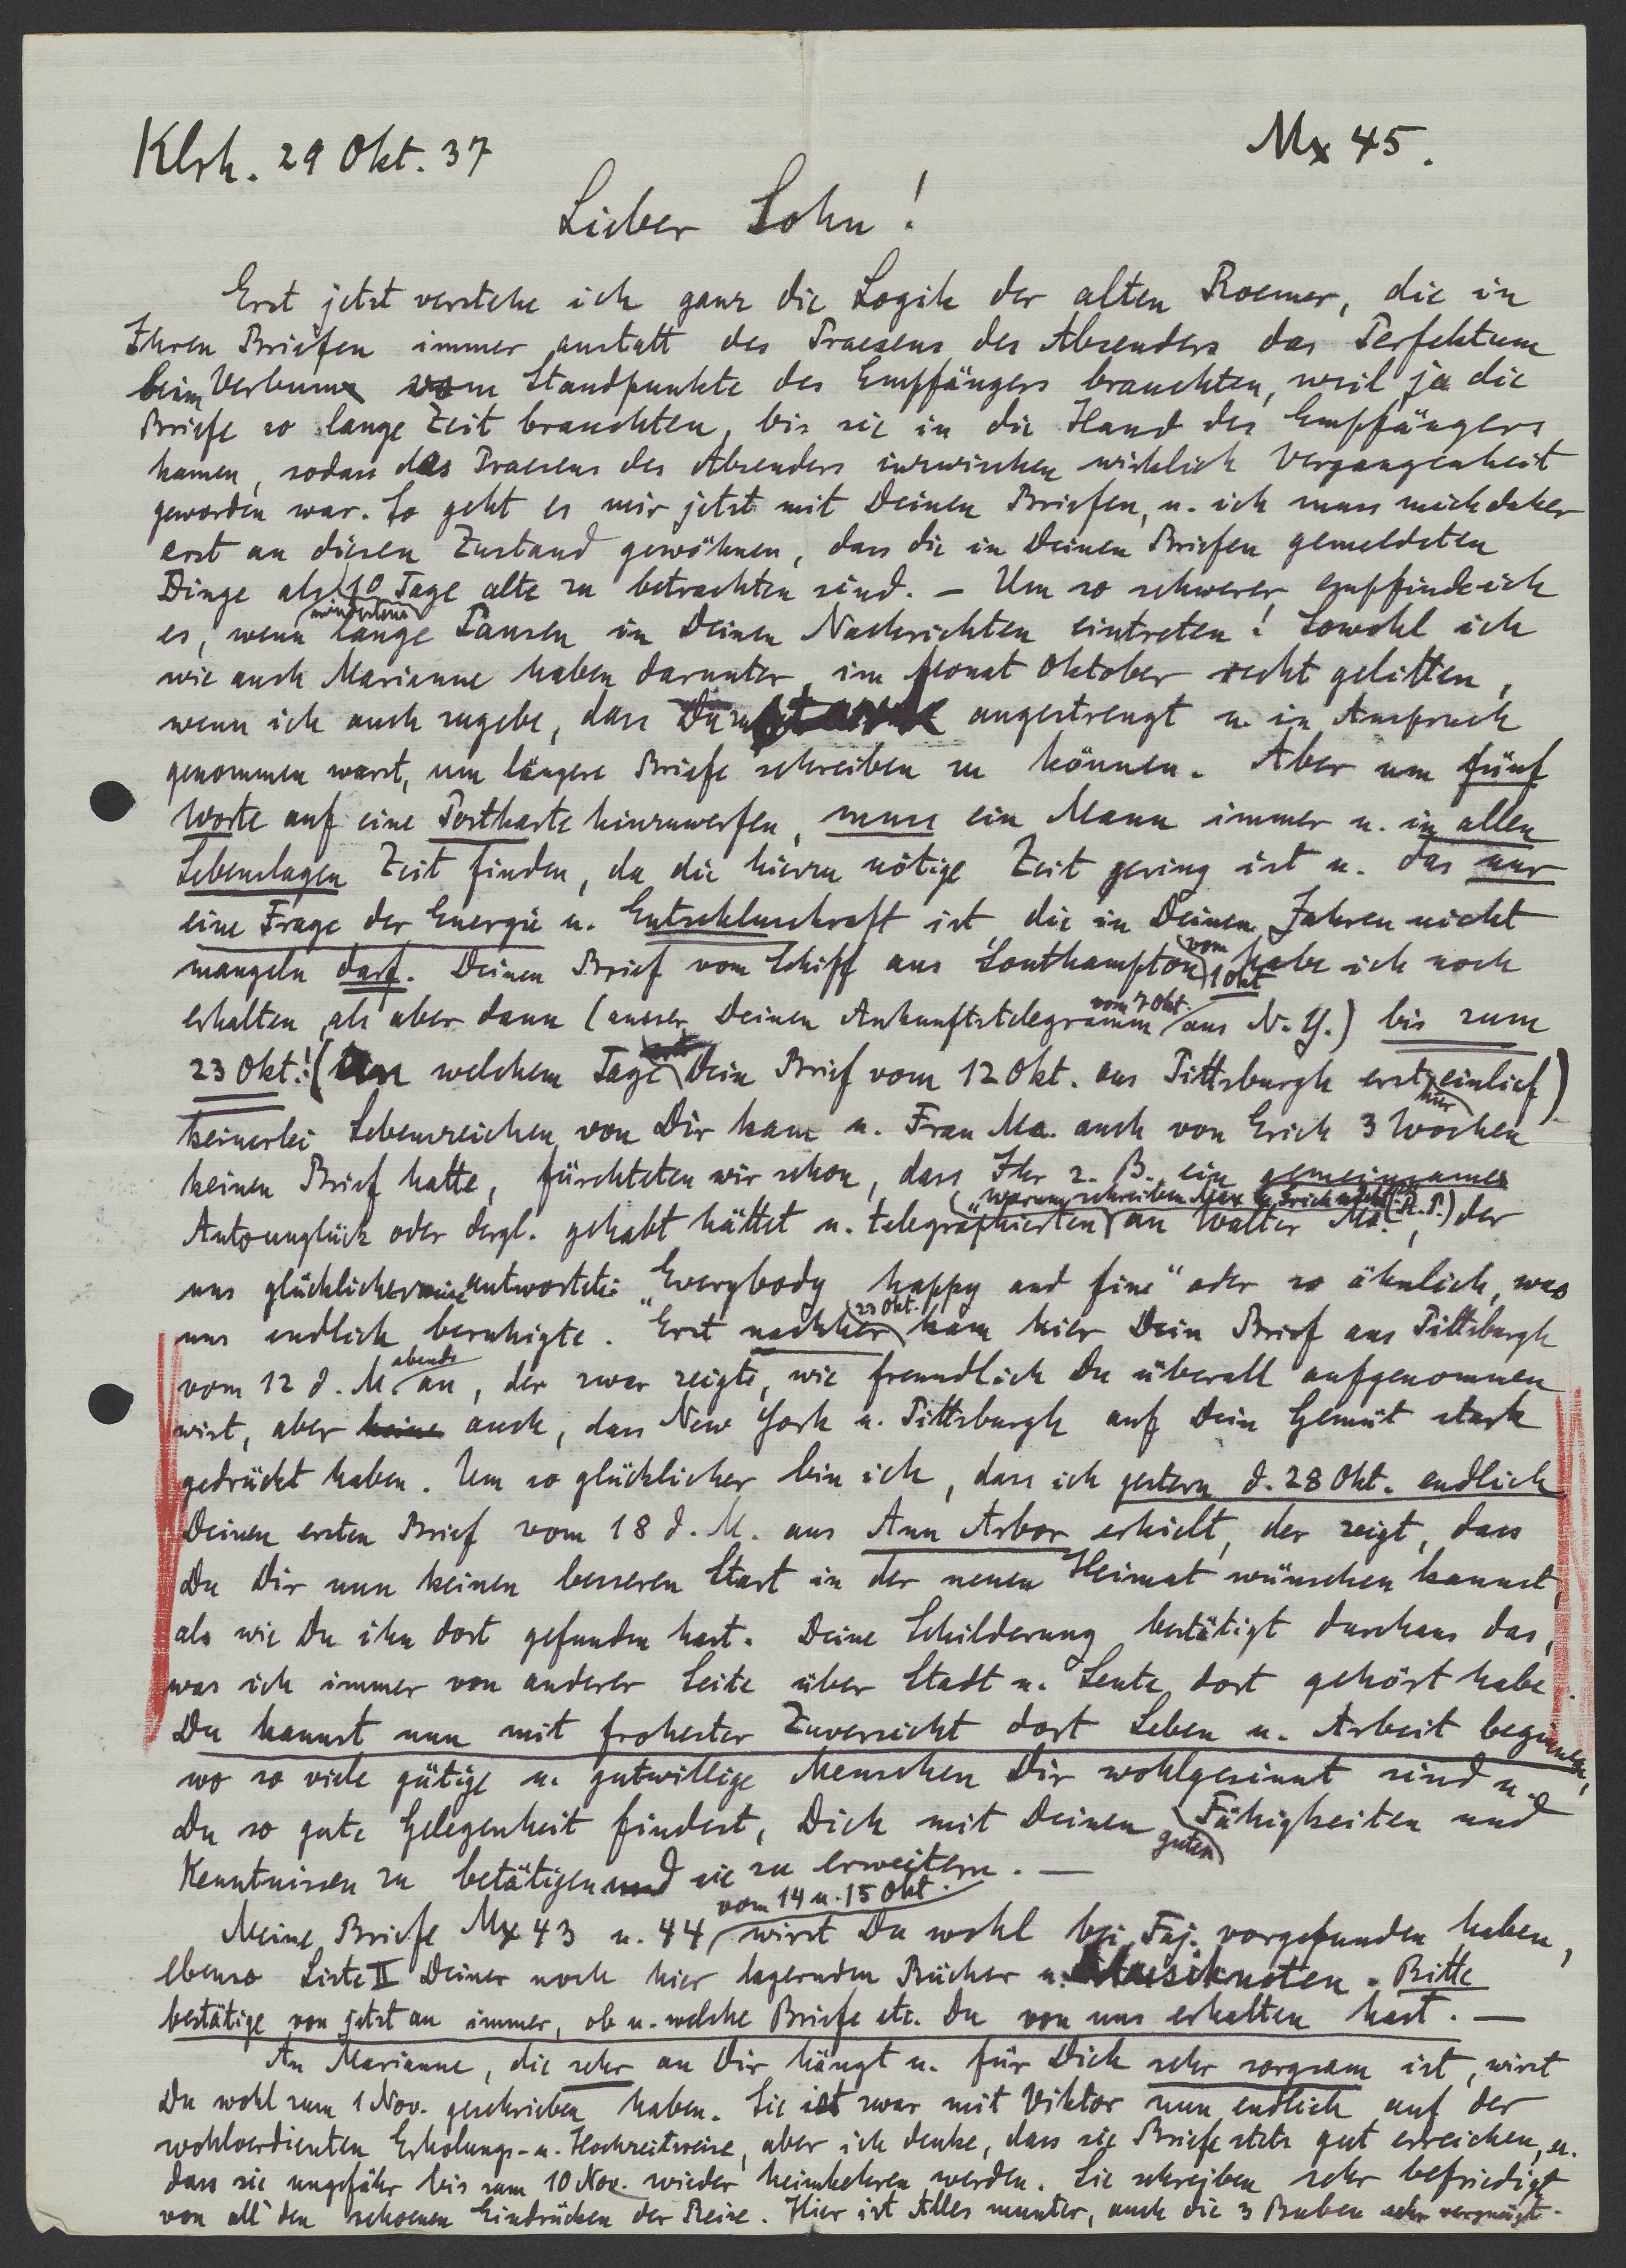 Klrh. 29 Okt. 37
Mx 45.
Lieber Sohn!
Erst jetzt verstehe ich ganz die Logik der alten Roemer, die in
Ihren Briefen immer anstatt des Praesens des Absenders das Perfektum
beim Verbum vom Standpunkte des Empfängers brauchten, weil ja die
Briefe so lange Zeit brauchten, bis sie in die Hand des Empfängers
kamen, sodass das Praesens des Absenders inzwischen wirklich Vergangenheit
geworden war. So geht es mir jetzt mit Deinen Briefen, u. ich muss mich daher
erst an diesen Zustand gewöhnen, dass die in Deinen Briefen gemeldeten
Dinge als mindestens 10 Tage alte zu betrachten sind. – Um so schwerer empfinde ich
es, wenn lange Pausen in Deinen Nachrichten eintreten! Sowohl ich
wie auch Marianne haben darunter im Monat Oktober recht gelitten,
wenn ich auch zugebe, dass Du zu angestrengt u. in Anspruch
genommen warst, um längere Briefe schreiben zu können. Aber um fünf
Worte auf eine Postkarte hinzuwerfen, muss ein Mann immer u. in allen
Lebenslagen Zeit finden, da die hierzu nötige Zeit gering ist u. das nur
eine Frage der Energie u. Entschlusskraft ist, die in Deinen Jahren nicht
mangeln darf. Deinen Brief vom Schiff aus Southampton vom 1 Okt habe ich noch
erhalten, als aber dann (ausser Deinen Ankunftstelegramm vom 7 Okt. aus N.Y.) bis zum
23 Okt.! (an welchem Tage Dein Brief vom 12 Okt. aus Pittsburgh erst hier einlief)
keinerlei Lebenszeichen von Dir kam u. Frau Ma. auch von Erich 3 Wochen
keinen Brief hatte, fürchteten wir schon, dass Ihr z. B. ein gemeinsames
Autounglück oder dergl. gehabt hättet u. telegraphierten "warum schreiben Max u. Erich nicht" (R.P.) an Walter Ma., der
uns glücklicherweise antwortete: "Everybody happy and fine" oder so ähnlich, was
uns endlich beruhigte. Erst nachher 23 Okt. kam hier Dein Brief aus Pittsburgh
vom 12 d. M. abends an, der zwar zeigte, wie freundlich Du überall aufgenommen
wirst, aber keine auch, dass New York u. Pittsburgh auf Dein Gemüt stark
gedrückt haben. Um so glücklicher bin ich, dass ich gestern d. 28 Okt. endlich
Deinen ersten Brief vom 18 d. M. aus Ann Arbor erhielt, der zeigt, dass
Du Dir nun keinen besseren Start in der neuen Heimat wünschen kannst,
als wie Du ihn dort gefunden hast. Deine Schilderung bestätigt durchaus das,
was ich immer von anderer Seite über Stadt u. Leute dort gehört habe.
Du kannst nun mit frohester Zuversicht dort Leben u. Arbeit beginnen,
wo so viele gütige u. gutwillige Menschen Dir wohlgesinnt sind u.
Du so gute Gelegenheit findest, Dich mit Deinen guten Fähigkeiten und
Kenntnissen zu betätigen und sie zu erweitern. —
Meine Briefe Mx 43 u. 44 vom 14 u. 15 Okt. wirst Du wohl bei Faj. vorgefunden haben,
ebenso Liste II Deiner noch hier lagernden Bücher u. Musiknoten. Bitte
bestätige von jetzt an immer, ob u. welche Briefe etc. Du von uns erhalten hast. —
An Marianne, die sehr an Dir hängt u. für Dich sehr sorgsam ist, wirst
Du wohl zum 1 Nov. geschrieben haben. Sie ist zwar mit Viktor nun endlich auf der
wohlverdienten Erholungs- u. Hochzeitsreise, aber ich denke, dass sie Briefe stets gut erreichen, u.
dass sie ungefähr bis zum 10 Nov. wieder heimkehren werden. Sie schreiben sehr befriedigt
von all' den schoenen Eindrücken der Reise. Hier ist Alles munter, auch die 3 Buben sehr vergnügt.